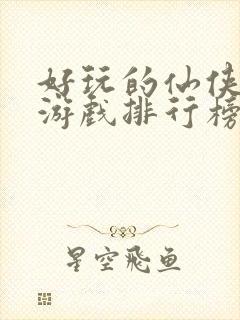 好玩的仙侠
游戏排行榜
星空飛鱼